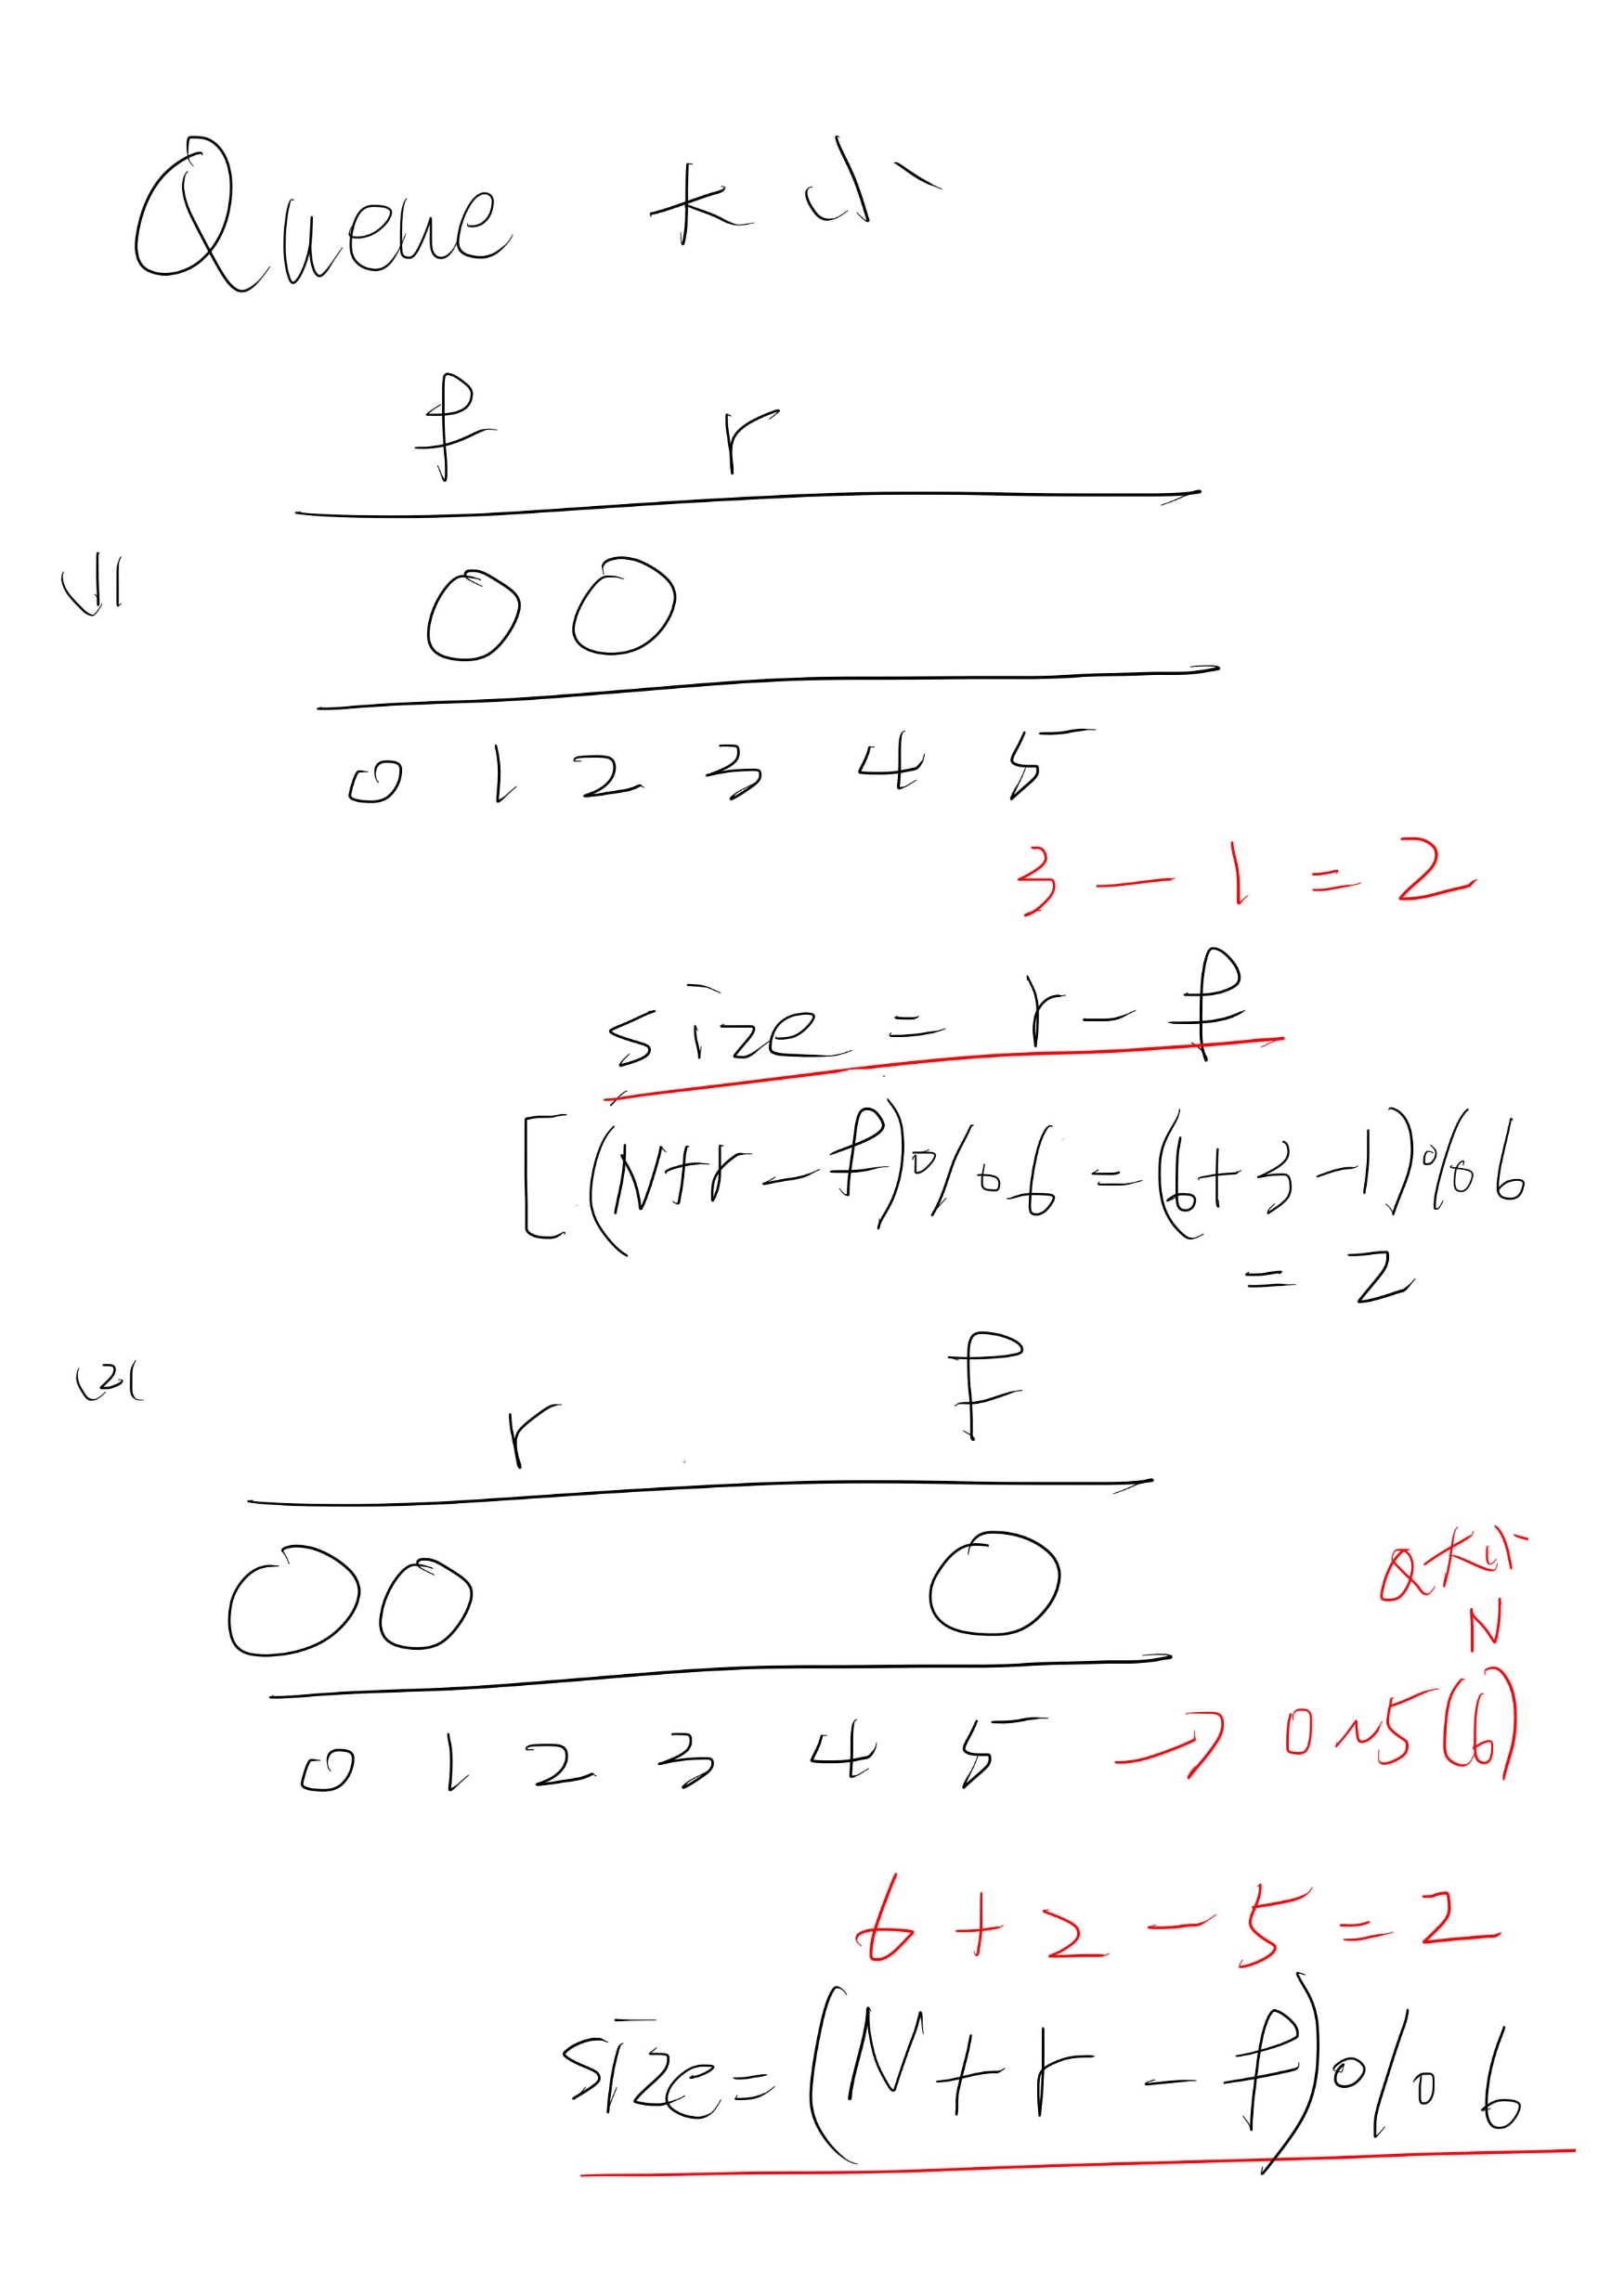 Queue 大小
f r
(1)
0 1 2 3 4 5
3 - 1 = 2
size = r - f
[(N+r-f)%6=(6+3-1)%6
= 2
(2)
r f
Q大小
N
0 1 2 3 4 5 → 0~5(6)
6 + 2 - 5 = 2
size=(N+r-f)%6